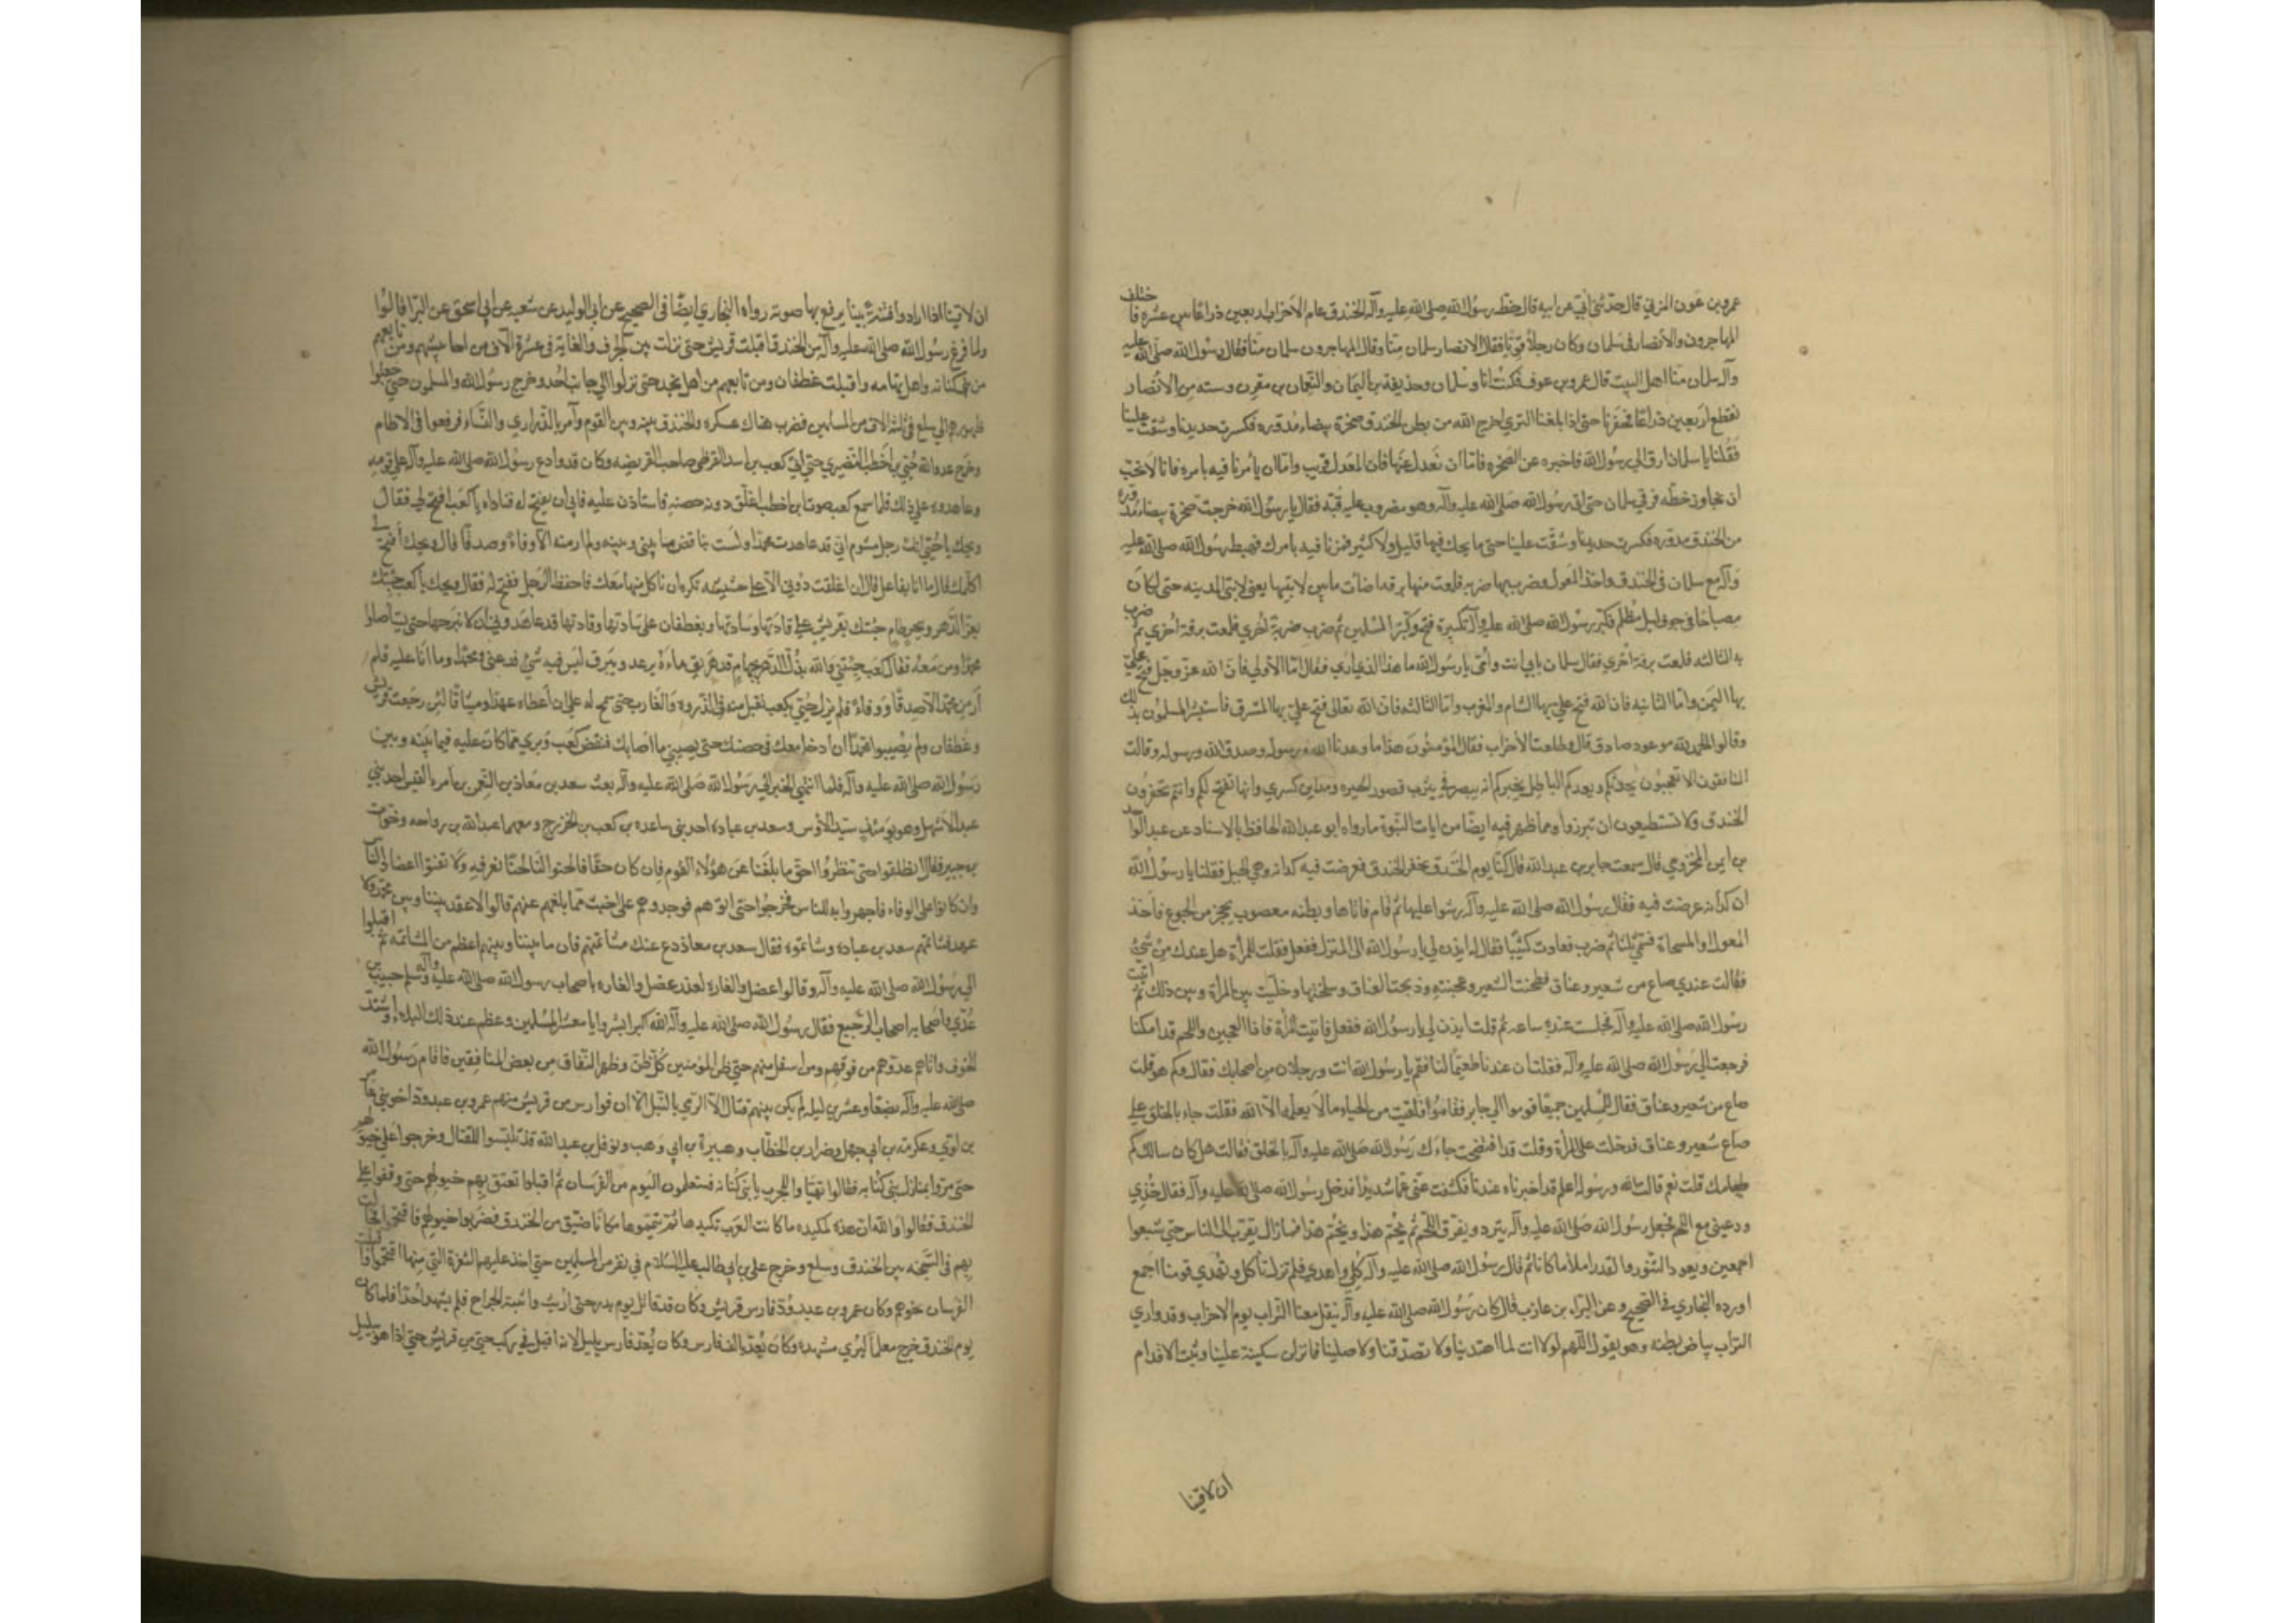 عمرو بن عون المزني قال حدثني أبي عن ابيه قال خط رسول الله صلى الله عليه وآله الخندق عام الاحزاب اربعين ذراعا بين عشرة فاختلف
المهاجرون والأنصار في سلمان وكان رجلا قويا فقال الانصار سلمان منا وقال المهاجرون سلمان منا فقال رسول الله صلى الله عليه
وآله سلمان منا اهل البيت قال عمرو بن عوف فكنت انا وسلمان وحذيفة بن اليمان والنعمان بن مقرن وسته من الانصار
نقطع اربعين ذراعا فحفرنا حتى اذا بلغنا الثري اخرج الله من بطن الخندق صخرة بيضاء مدوره فكسرت حديدنا وشقت علينا
فقلنا يا سلمان ارق الي رسول الله فاخبره عن الصخره فاما أن نعدل عنها فان المعدل قريب واما ان يأمرنا فيه بامره فانا لا نحب
ان نجاوز خطه فرقي سلمان حتى اتى رسول الله صلى الله عليه وآله وهو مضروب عليه قبة فقال يا رسول الله خرجت صخرة بيضاء مدوره
من الخندق مدوره فكسرت حديدنا وشقت علينا حتى ما يحك فيها قليل ولا كثير فمرنا فيه بامرك فهبط رسول الله صلى الله عليه
وآله مع سلمان في الخندق واخذ المعول وضرب بها ضربه فلعت منها برقه اضاءت ما بين لابتيها يعني لابتي المدينه حتى لكان
مصباحا في جوف ليل مظلم فكبر رسول الله صلى الله عليه وآله تكبيرة فتح وكبر المسلمين ثم ضرب ضربة اخري فلعت برقة اخري ثم ضرب
به الثالثه فلعت برقة اخري فقال سلمان بابي انت وامي يا رسول الله ما هذا الذي اري فقال اما الأولي فان الله عز وجل فتح علي
بها اليمن واما الثانيه فان الله فتح علي بها الشام والمغرب واما الثالثه فان الله تعالى فتح علي بها المشرق فاستبشر المسلمون بذلك
وقالوا الحمد لله موعود صادق قال وطلعت الأحزاب فقال المؤمنون هذا ما وعدنا الله ورسوله وصدق الله ورسوله وقالت
المنافقون الا تعجبون يحدثكم ويعدكم الباطل يخبركم انه يبصر في يثرب قصور الحيره ومداين كسري وانها تفتح لكم وانتم تحفرون
الخندق ولا تستطيعون ان تبرزوا ومما ظهر فيه ايضا من ايات النبوة ما رواه ابو عبد الله الحافظ بالاسناد عن عبد الواحد
بن ايمن المخزومي قال سمعت جابر بن عبد الله قال كنا يوم الخندق نحفر الخندق فعرضت فيه كدانه وهي الجبل فقلنا يا رسول الله
ان كدانه عرضت فيه فقال رسول الله صلى الله عليه وآله رشوا عليها ثم قام فاتاها وبطنه معصوب بحجر من الجوع فاخذ
المعول او المسحاة فسمي ثلثا ثم ضرب فعادت كثيبا فقال له ايذن لي يا رسول الله الى المنزل ففعل فقلت للمرأة هل عندك من شيء
فقالت عندي صاع من شعير وعناق فطحنت الشعير وعجنته وذبحت العناق وسلختها وخليت بين المرأة وبين ذلك ثم اتيت
رسول الله صلى الله عليه وآله فجلست عنده ساعه ثم قلت ايذن لي يا رسول الله ففعل فاتيت المرأة فاذا العجين واللحم قد امكنا
فرجعت الى رسول الله صلى الله عليه وآله فقلت ان عندنا طعيما لنا فقم يا رسول الله انت ورجلان من اصحابك فقال وكم هو قلت
صاع من شعير وعناق فقال للمسلمين جميعا قوموا الي جابر فقاموا فلقيت من الحياء ما لا يعلمه الا الله فقلت جاء بالخلق على
صاع شعير وعناق فدخلت على المرأة وقلت قد افتضحت جاءك رسول الله صلى الله عليه وآله بالخلق فقالت هل كان سالك كم
طعامك قلت نعم قالت الله ورسوله اعلم قد اخبرناه عندنا فكشفت عني غما شديدا فدخل رسول الله صلى الله عليه وآله فقال خذي
ودعيني مع اللحم فجعل رسول الله صلى الله عليه وآله يثرد ويفرق اللحم ثم يخم هذا ويخم هذا فما زال يقرب الى الناس حتى شبعوا
اجمعين ويعود التنور والقدر املأ ما كانا ثم قال رسول الله صلى الله عليه وآله كلي واهدي فلم نزل نأكل ونهدي قومنا اجمع
اورده البخاري في الصحيح وعن البراء بن عازب قال كان رسول الله صلى الله عليه وآله ينقل معنا التراب يوم الاحزاب وقد واري
التراب بياض بطنه وهو يقول اللهم لولا انت لما اهتدينا ولا تصدقنا ولا صلينا فانزلن سكينة علينا وثبت الاقدام
ان لاقينا
ان لاقينا اذا ارادوا فتنة ابينا يرفع بها صوته رواه البخاري ايضا في الصحيح عن ابي الوليد عن شعبه عن ابي اسحق عن البرا قالوا
ولما فرغ رسول الله صلى الله عليه وآله من الخندق اقبلت قريش حتى نزلت بين الجرف والغابة في عشرة آلاف من احابيشهم ومن تابعهم
من بني كنانه واهل تهامه واقبلت غطفان ومن تابعهم من اهل نجد حتى نزلوا الي جانب احد وخرج رسول الله والمسلمون حتى جعلوا
ظهورهم الي سلع في ثلثة الاف من المسلمين فضرب هناك عسكره والخندق بينه وبين القوم وأمر بالذراري والنساء فرفعوا في الاطام
وخرج عدو الله حيي بن اخطب النضيري حتى اتي كعب بن اسد القرظي صاحب القريضه وكان قد وادع رسول الله صلى الله عليه وآله على قومه
وعاهده علي ذلك فلما سمع كعب صوت ابن اخطب اغلق دونه حصنه فاستاذن عليه فابي ان يفتح له فناداه يا كعب افتح لي فقال
ويحك يا حيي انك رجل مشوم اني قد عاهدت محمدا ولست بناقض ما بيني وبينه ولم ار منه الا وفاء وصدقا قال ويحك أفتح لي
اكلمك قال ما انا بفاعل قال ان اغلقت دوني الا على حشيشه تكره ان ناكل منها معك فاحفظ الرجل ففتح له فقال ويحك يا كعب جئتك
بعز الدهر وببحر طام جئتك بقريش على قادتها وسادتها وبغطفان على سادتها وقادتها قد عاهدوني ان لا نبرحها حتى يستاصلوا
محمدا ومن معه فقال كعب جئتني والله بذل الدهر بجهام قد هريق ماءه يرعد ويبرق ليس فيه شيء فدعني ومحمدا وما انا عليه فلم
أر من محمد الا صدقا ووفاء فلم يزل حيي بكعب يفتل منه في الذروة والغارب حتى سمح له على ان اعطاه عهدا وميثاقا لئن رجعت قريش
وغطفان ولم يصيبوا محمدا ان ادخل معك في حصنك حتى يصيبني ما اصابك فنقض كعب وبري مما كان عليه فيما بينه وبين
رسول الله صلى الله عليه وآله فلما انتهي الخبر الي رسول الله صلى الله عليه وآله بعث سعد بن معاذ بن النعمن بن امرء القيس احد بني
عبد الاشهل وهو يومئذ سيد الأوس وسعد بن عباده احد بني ساعده بن كعب بن الخزرج ومعهما عبد الله بن رواحه وخوات
بن جبير فقال انطلقوا حتى تنظروا احق ما بلغنا عن هؤلاء القوم فان كان حقا فالحنوا لنا لحنا نعرفه ولا تفتوا اعضاد الناس
وان كانوا على الوفاء فاجهروا به للناس فخرجوا حتى اتوهم فوجدوهم على اخبث مما بلغهم عنهم قالوا لا عقد بيننا وبين محمد ولا
عهد فشاتمهم سعد بن عباده وشاتموه فقال سعد بن معاذ دع عنك مشاتمتهم فان ما بيننا وبينهم اعظم من المشاتمه ثم اقبلوا
الي رسول الله صلى الله عليه وآله وقالوا عضل والقارة لغدر عضل والقاره باصحاب رسول الله صلى الله عليه وآله وسلم حبيب بن
عدي واصحابه اصحاب الرجيع فقال رسول الله صلى الله عليه وآله الله اكبر ابشروا يا معشر المسلمين وعظم عند ذلك البلاء واشتد
الخوف واتاهم عدوهم من فوقهم ومن اسفل منهم حتى ظن المؤمنين كل ظن وظهر النفاق من بعض المنافقين فاقام رسول الله
صلى الله عليه وآله بضعا وعشرين ليله لم يكن بينهم قتال الا الرمي بالنبل الا ان فوارس من قريش منهم عمرو بن عبد ود اخو بني عامر
بن لوي وعكرمة بن ابي جهل وضرار بن الخطاب وهبيرة بن ابي وهب ونوفل بن عبد الله قد تلبسوا للقتال وخرجوا على خيولهم
حتى مروا بمنازل بني كنانه فقالوا تهيا واللحرب يا بني كنانه فستعلمون اليوم من الفرسان ثم اقبلوا تعنق بهم خيولهم حتى وقفوا على
الخندق فقالوا والله ان هذه لمكيده ما كانت العرب تكيدها ثم تيمموا مكانا ضيق من الخندق فضربوا خيولهم فاقتحموا فجالت
بهم في السبخه بين الخندق وسلع وخرج علي بن ابي طالب عليه السلام في نفر من المسلمين حتى اخذ عليهم الثغرة التي منها اقتحموا واقبلت
الفرسان نحوهم وكان عمرو بن عبد ود فارس قريش وكان قد قاتل يوم بدر حتى ارتث واثبته الجراح فلم يشهد احدا فلما كان
يوم الخندق خرج معلما ليري مشهده وكان يعد بالف فارس وكان يعد فارس يليل لانه اقبل في ركب حتى من قريش حتى اذا هو بيليل